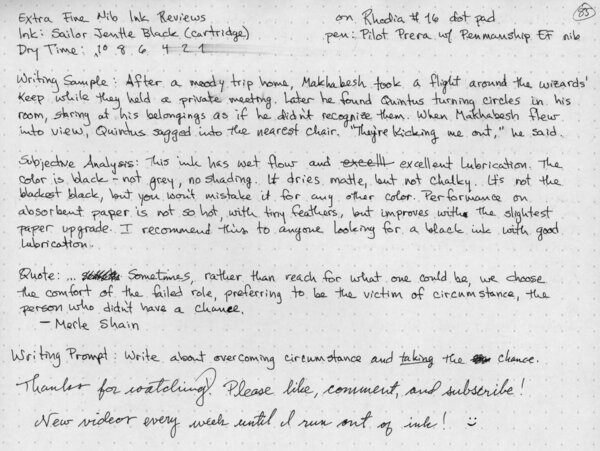 Extra Fine Nib Ink Reviews on Rhodia #16 dot pad 85
Ink: Sailor Jentle Black (cartridge) pen: Pilot Prera w/ Penmanship EF nib
Dry Time: 10 8 6 4 2 1
Writing Sample: After a moody trip home, Makhabesh took a flight around the wizards'
Keep while they held a private meeting. Later he found Quintus turning circles in his
room, staring at his belongings as if he didn't recognize them. When Makhabesh flew
into view, Quintus sagged into the nearest chair. "They're kicking me out," he said.
Subjective Analysis: This ink has wet flow and excell excellent lubrication. The
color is black - not grey, no shading. It dries matte, but not chalky. It's not the
blackest black, but you won't mistake it for any other color. Performance on
absorbent paper is not so hot, with tiny feathers, but improves with the slightest
paper upgrade. I recommend this to anyone looking for a black ink with good
lubrication.
Quote: ... Sometimes, rather than reach for what one could be, we choose
the comfort of the failed role, preferring to be the victim of circumstance, the
person who didn't have a chance.
- Merle Shain
Writing Prompt: Write about overcoming circumstance and taking the chance.
Thanks for watching! Please like, comment, and subscribe!
New videos every week until I run out of ink!